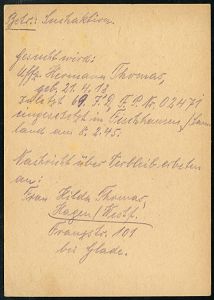 Betr.: Suchaktion.
gesucht wird:
Uffz. Hermann Thomas,
geb. 21.4.18
zuletzt 69. J.D. F.P. Nr. 02471
eingesetzt in Fischhausen/Sam
land am 8.2.45.
Nachricht über Verbleib erbeten
an:
Frau Hilda Thomas,
Hagen/Westf.
Prangstr. 101
bei Glade.